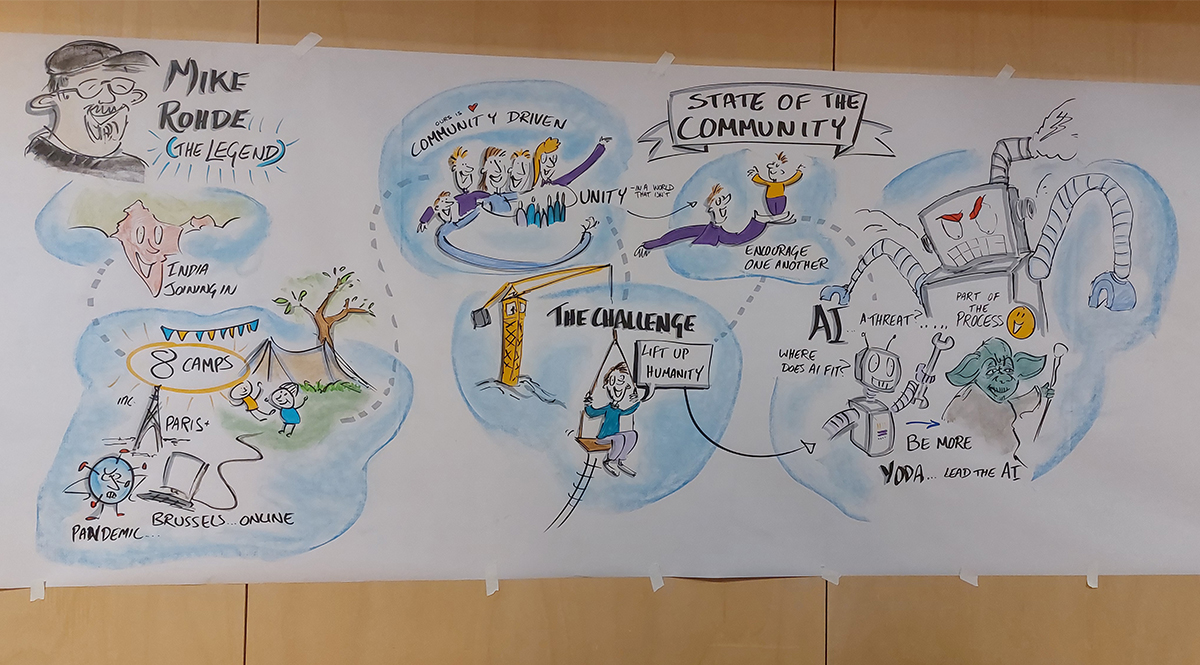 MIKE
ROHDE
(THE LEGEND)
INDIA
JOINING IN
8 CAMPS
INC.
PARIS+
PANDEMIC....
BRUSSELS...ONLINE
OURS IS
COMMUNITY DRIVEN
UNITY
-IN A WORLD
THAT ISN'T
STATE OF THE
COMMUNITY
ENCOURAGE
ONE ANOTHER
THE CHALLENGE
LIFT UP
HUMANITY
AI... A THREAT?.....
PART OF
THE
PROCESS
WHERE
DOES AI FIT?
BE MORE
YODA... LEAD THE AI